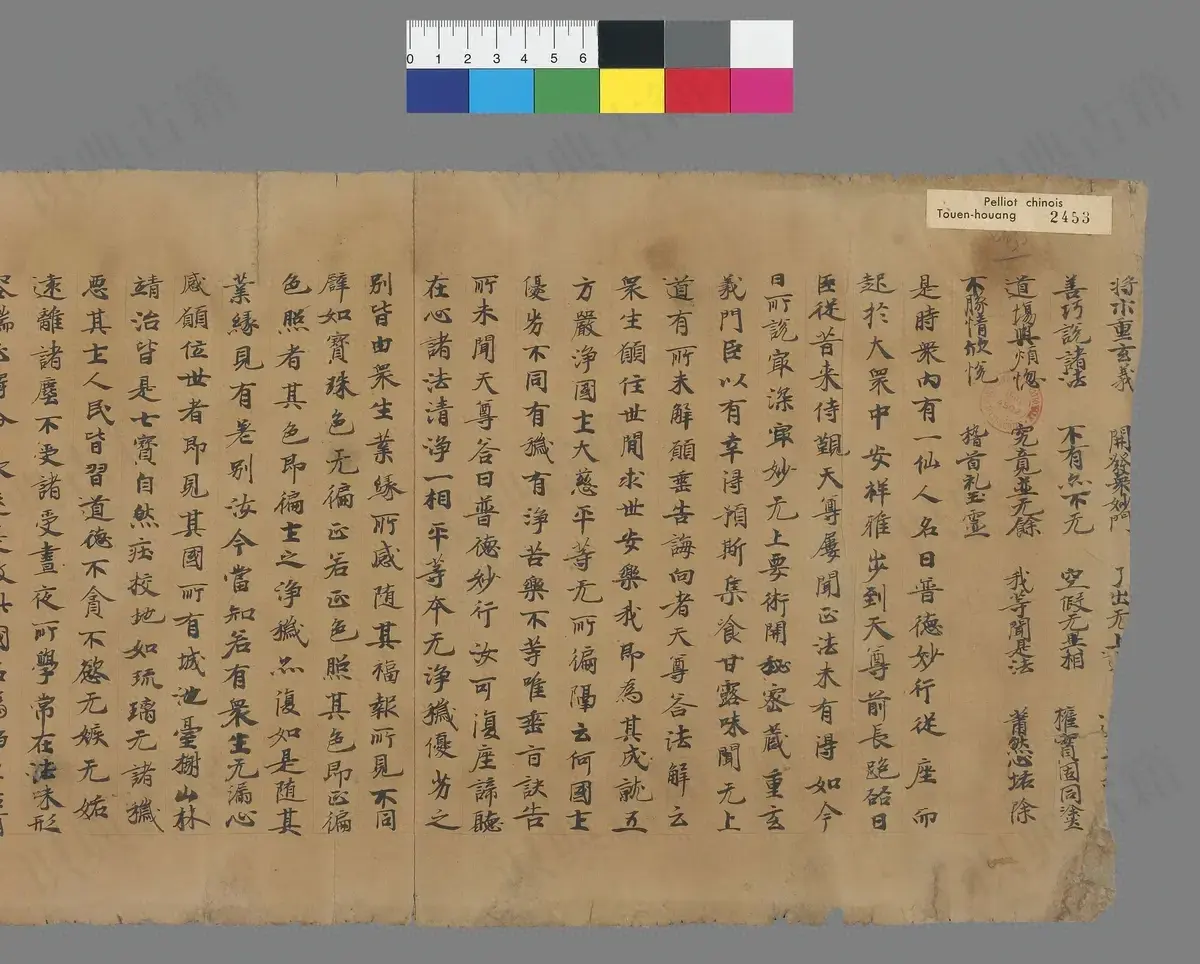 Pelliot chinois
Touen-houang 2453
0 1 2 3 4 5 6
将示重玄義 開發衆妙門 了出无上
善巧說諸法 不有亦不无 空假无異相 權實固同塗
道場與煩惚 究竟並无餘 我等聞是法 蕭然心垢除
不勝情欣悅 稽首礼玉霊
是時衆內有一仙人名曰普德妙行從座而
起於大衆中安祥雅步到天尊前長跪啓曰
臣從昔来侍覲天尊屢聞正法未有得如今
日所說㝡深㝡妙无上要術開秘密蔵重玄
義門臣以有幸得預斯集飡甘露味聞无上
道有所未解願垂告誨向者天尊荅法解云
衆生願住世間求世安樂我即為其成就五
方嚴淨國土大慈平等无所偏隔云何國土
優劣不同有穢有淨苦樂不等唯垂百訣告
所未聞天尊荅曰普德妙行汝可復座諦聽
在心諸法清淨一相平等夲无淨穢優劣之
別皆由衆生業緣所感随其福報所見不同
辟如寶珠色无偏正若正色照其色即正偏
色照者其色即偏土之淨穢亦復如是随其
業緣見有差別汝今當知若有衆生无漏心
感願位世者即見其國所有城池臺榭山林
靖治皆是七寶自然庄校地如琉璃无諸穢
惡其土人民皆習道德不貪不慾无嫉无妬
遠離諸塵不受諸受晝夜所學常在法味形